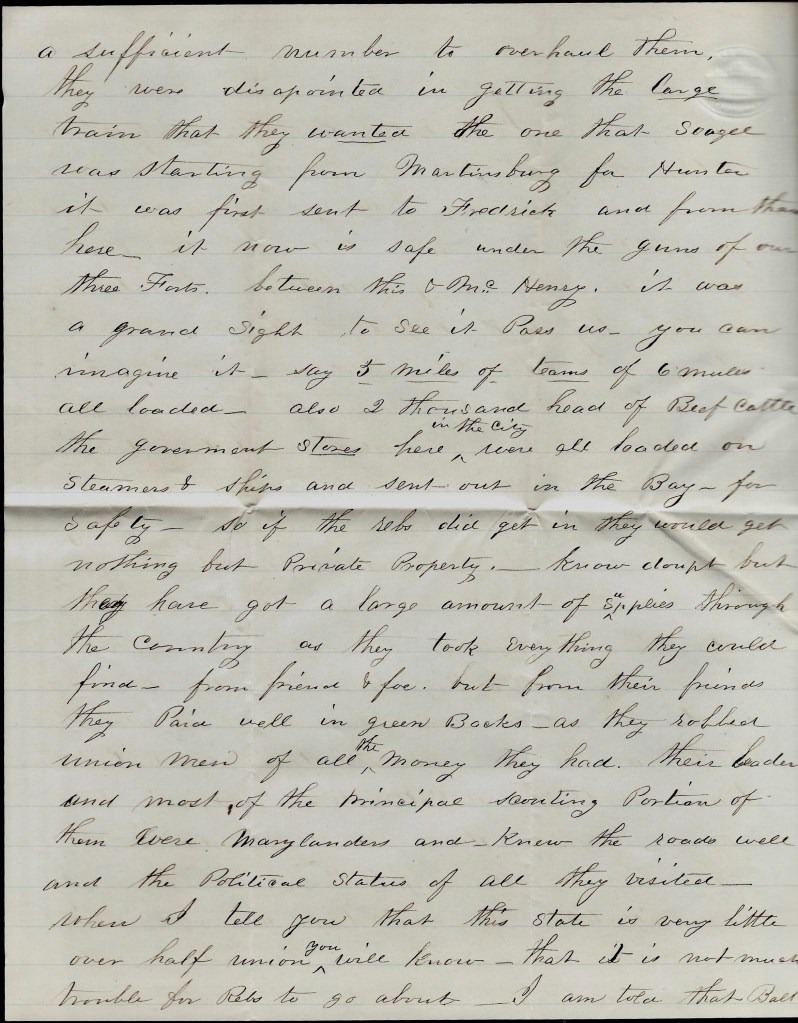 a sufficient number to overhaul them,
they were disapointed in getting the large
train that they wanted the one that
was starting from Martinsburg for Hunter
it was first sent to Fredrick and from then
here – it now is safe under the guns of our
three Forts. between this & Mc Henry. it was
a grand Sight to See it Pass us – you can
imagine it – say 5 miles of teams of 6 mules
all loaded – also 2 thousand head of Beef Cattle
the goverment Stores here in the City were all loaded on
Steamers & ships and sent out in the Bay – for
Safety – so if the rebs did get in they would get
nothing but Private Property. – know doupt but
they have got a large amount of supplies through
the Country as they took Every thing they could
find – from friend & foe. but from their friends
they Paid well in green Backs – as they robbed
union men of all the Money they had. their leader
and most of the Principal scouting Portion of
them Were Marylanders and – Knew the roads well
and the Political Status of all they visited –
when I tell you that this State is very little
over half union you will know – that it is not much
trouble for Rebs to go about – I am told that Balt